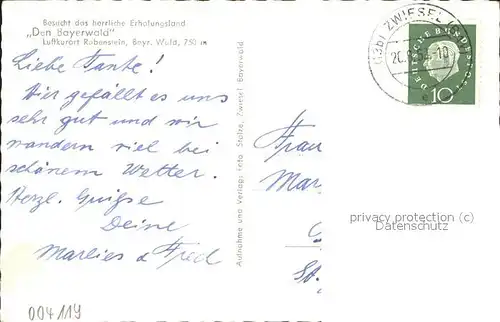 Besucht das herrliche Erholungsland
„Den Bayerwald"
Luftkurort Rabenstein, Bayr. Wald, 750 m
Liebe Tante!
Hier gefällt es uns
sehr gut und wir
wandern viel bei
schönem Wetter.
Herzl. Grüße
Deine
Marlies & Fred
004119
Aufnahme und Verlag: Foto Stolze, Zwiesel Bayerwald
(13b) ZWIESEL
DEUTSCHE BUNDESPOST
10
Frau
Mar
St.
privacy protection (c)
Datenschutz